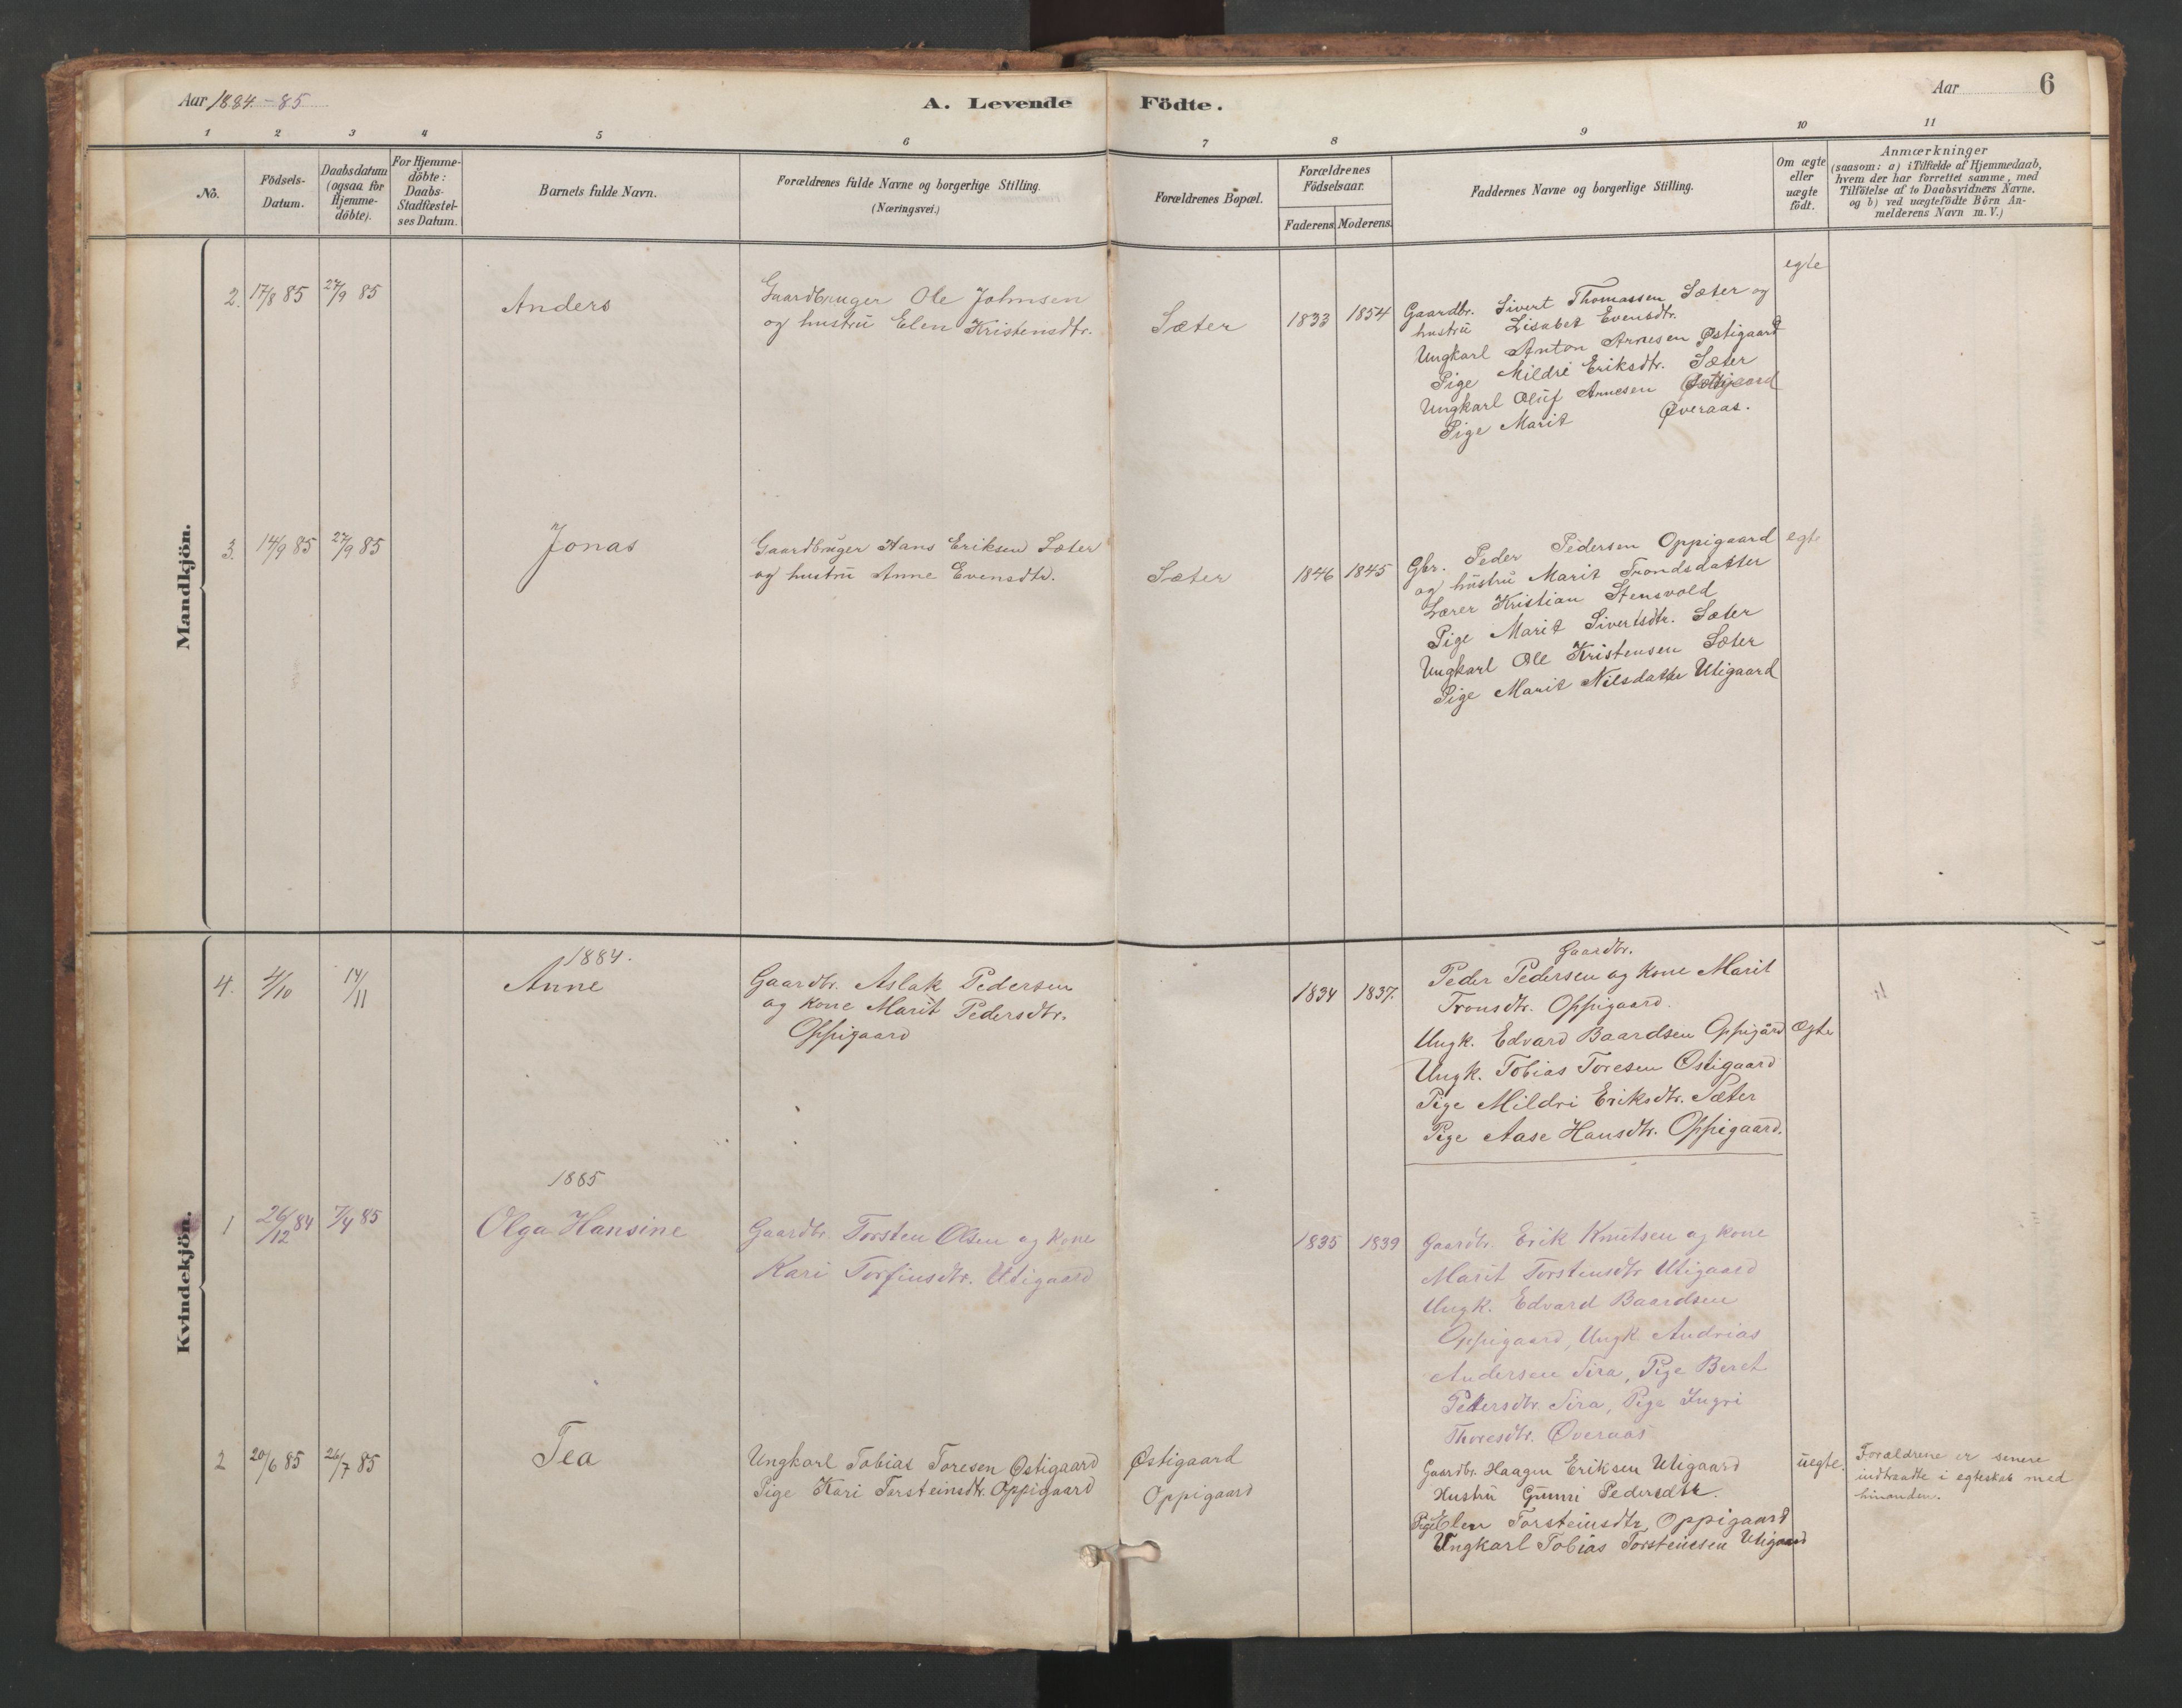 Aar 1884-85
A. Levende Födte.
Aar
6
1 2 3 4 5 6 7 8 9 10 11
No.
Födsels-
Datum.
Daabsdatum
(ogsaa för
Hjemme-
döbte).
For Hjemme-
döbte:
Daabs-
Stadfæstel-
ses Datum.
Barnets fulde Navn.
Forældrenes fulde Navne og borgerlige Stilling.
(Næringsvei.)
Forældrenes Bopæl.
Forældrenes
Födselsaar.
Faderens. Moderens.
Faddernes Navne og borgerlige Stilling.
Om ægte
eller
uægte
födt.
Anmærkninger
(saasom: a) i Tilfælde af Hjemmedaab,
hvem der har forrettet samme, med
Tilföielse af to Daabsvidners Navne.
og b) ved uægtefödte Börn An-
melderens Navn m. V.)
Mandkjön.
2. 17/8 85 27/9 85
Anders
Gaardbruger Ole Johnsen
og hustru Elen Kristensdtr.
Sæter
1833 1854
Gaardbr. Sivert Thomassen Sæter og
hustru Lisabet Evensdtr.
Ungkarl Anton Arnesen Østigaard
Pige Mildri Eriksdtr. Sæter
Ungkarl Oluf Arnesen
Pige Marit Øveraas.
egte
3. 14/9 85 27/9 85
Jonas
Gaardbruger Hans Eriksen Sæter
og hustru Anne Evensdtr.
Sæter
1846 1845
Gbr. Peder Pedersen Oppigaard
og hustru Marit Trondsdatter
Lærer Kristian Stensvold
Pige Marit Sivertsdtr. Sæter
Ungkarl Ole Kristensen Sæter
Pige Marit Nilsdatter Utigaard
egte
Kvindekjön.
1884.
4. 4/10 14/11
Anne
Gaardbr. Aslak Pedersen
og Kone Marit Pedersdtr.
Oppigaard
1834 1837.
Gaardbr.
Peder Pedersen og Kone Marit
Tronsdtr. Oppigaard.
Ungk. Edvard Baardsen Oppigård
Ungk. Tobias Toresen Østigaard
Pige Mildri Eriksdtr. Sæter
Pige Aase Hansdtr. Oppigaard.
Ægte
1885
1 26/12 84 7/4 85
Olga Hansine
Gaardbr. Torsten Olsen og Kone
Kari Torfinsdtr. Utigaard
1835 1839
Gaardbr. Erik Knutsen og Kone
Marit Torstensdtr Utigaard
Ungk. Edvard Baardsen
Oppigaard, Ungk. Andrias
Andersen Sira, Pige Beret
Pedersdtr. Sira, Pige Ingri
Thoresdtr. Øveraas
2 20/6 85 26/7 85
Tea
Ungkarl Tobias Toresen Østigaard
Pige Kari Torsteinsdtr. Oppigaard
Østigaard
Oppigaard
Gaardbr. Haagen Eriksen Utigaard
Hustru Gunni Pedersdtr.
Pige Elen Torsteinsdtr Oppigaard
Ungkarl Tobias Torsteinsen Utigaard
uegte.
Forældrene er senere
indtraadte i egteskab med
hinanden.